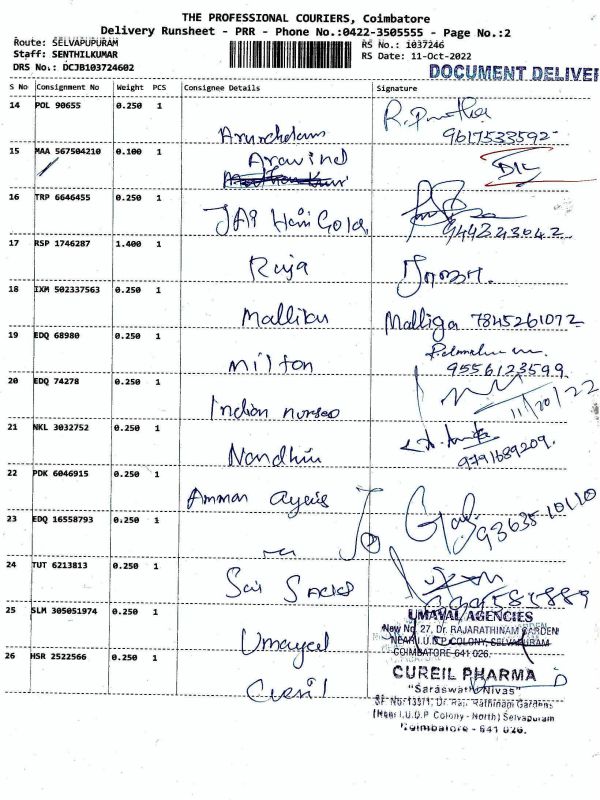 THE PROFESSIONAL COURIERS, Coimbatore
Delivery Runsheet - PRR - Phone No.:0422-3505555 - Page No.:2
Route: SELVAPUPURAM
RS No.: 1037246
Staff: SENTHILKUMAR
RS Date: 11-Oct-2022
DRS No.: DCJB103724602
DOCUMENT DELIVER
S No Consignment No Weight PCS Consignee Details Signature
14 POL 90655 0.250 1
9617533592
15 MAA 567504210 0.100 1 Aravind
16 TRP 6646455 0.250 1
9442243042
17 RSP 1746287 1.400 1 Raja
18 IXM 502337563 0.250 1 Mallika Malliga 7845261072
19 EDQ 68980 0.250 1 Milton
9556123599
20 EDQ 74278 0.250 1 Indian
11/10/22
21 NKL 3032752 0.250 1 Nandhini
9791689209.
22 PDK 6046915 0.250 1 Amman
23 EDQ 16558793 0.250 1
9363510110
24 TUT 6213813 0.250 1 Sai
25 SLM 305051974 0.250 1 Umayal
UMAYAL AGENCIES
New No. 27, Dr. RAJARATHINAM GARDEN
NEAR I.U.D.P COLONY, SELVAPURAM
COIMBATORE-641 026.
26 HSR 2522566 0.250 1 Cureil
CUREIL PHARMA
"Saraswathi Nivas"
SF No:1
(Near I.U.D.P Colony - North) Selvapuram
Coimbatore - 641 026.